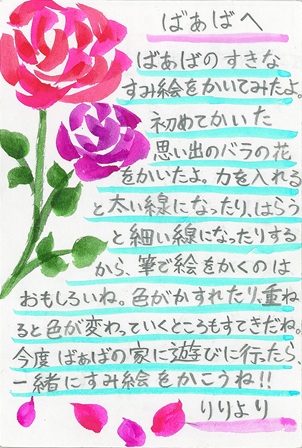 ばあばへ
ばあばのすきな
すみ絵をかいてみたよ。
初めてかいた
思い出のバラの花
をかいたよ。力を入れる
と太い線になったり、はらう
と細い線になったりする
から、筆で絵をかくのは
おもしろいね。色がかすれたり、重ね
ると色が変わっていくところもすてきだね。
今度ばあばの家に遊びに行ったら、
一緒にすみ絵をかこうね!!
りりより